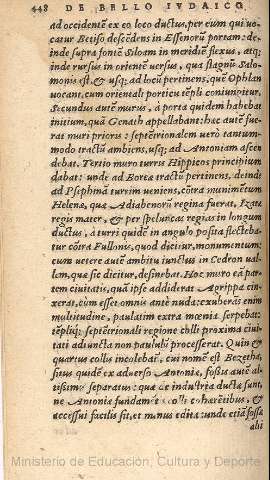 448 DE BELLO IVDAICO,
ad occidentē ex eo loco ductus, per eum qui vo
catur Betiso descēdens in Essenorū portam: de
inde supra fontē Siloam in meridiē flexus, atq;
inde rursus in orientē versus, qua stagnū Salo
monis est, & vsq; ad locū pertinens, quē Ophlan
vocant, cum orientali porticu tēpli coniungitur.
Secundus autē murus, à porta quidem habebat
initium, quā Genath appellabant: hæc autē fue
rat muri prioris: septētrionalem verò tantum-
modo tractū ambiens, vsq; ad Antoniam ascen
debat. Tertio muro turris Hippicos principium
dabat: unde ad Borea tractū pertinens, deinde
ad Psephinā turrim veniens, cōtra munimētum
Helenæ, quæ Adiabenorū regina fuerat, Izatæ
regis mater, & per speluncas regias in longum
ductus, à turri quidē in angulo posita flectebα
tur cōtra Fullonis, quod dicitur, monumentum:
cum uetere autē ambitu iunctus in Cedron ual-
lem, quæ sic dicitur, desinebat. Hoc muro eā par
tem ciuitatis, quā ipse addiderat Agrippa cin-
xerat, cùm esset omnis antè nuda: exuberās enim
multitudine, paulatim extra mœnia serpebat:
tēpliq; septētrionali regione colli proxima ciui-
tati adiuncta non paululū processerat. Quin &
quartus collis incolebat, cui nomē est Bezetha,
situs quidē ex aduerso Antoniæ, fossis autē al-
tissimis separatus: quæ de industria ductæ sunt,
ne Antoniæ fundamēta colli cohærētibus, &
accessui facilis sit, et minus edita: unde etiā fossa
alti
Ministerio de Educación, Cultura y Deporte